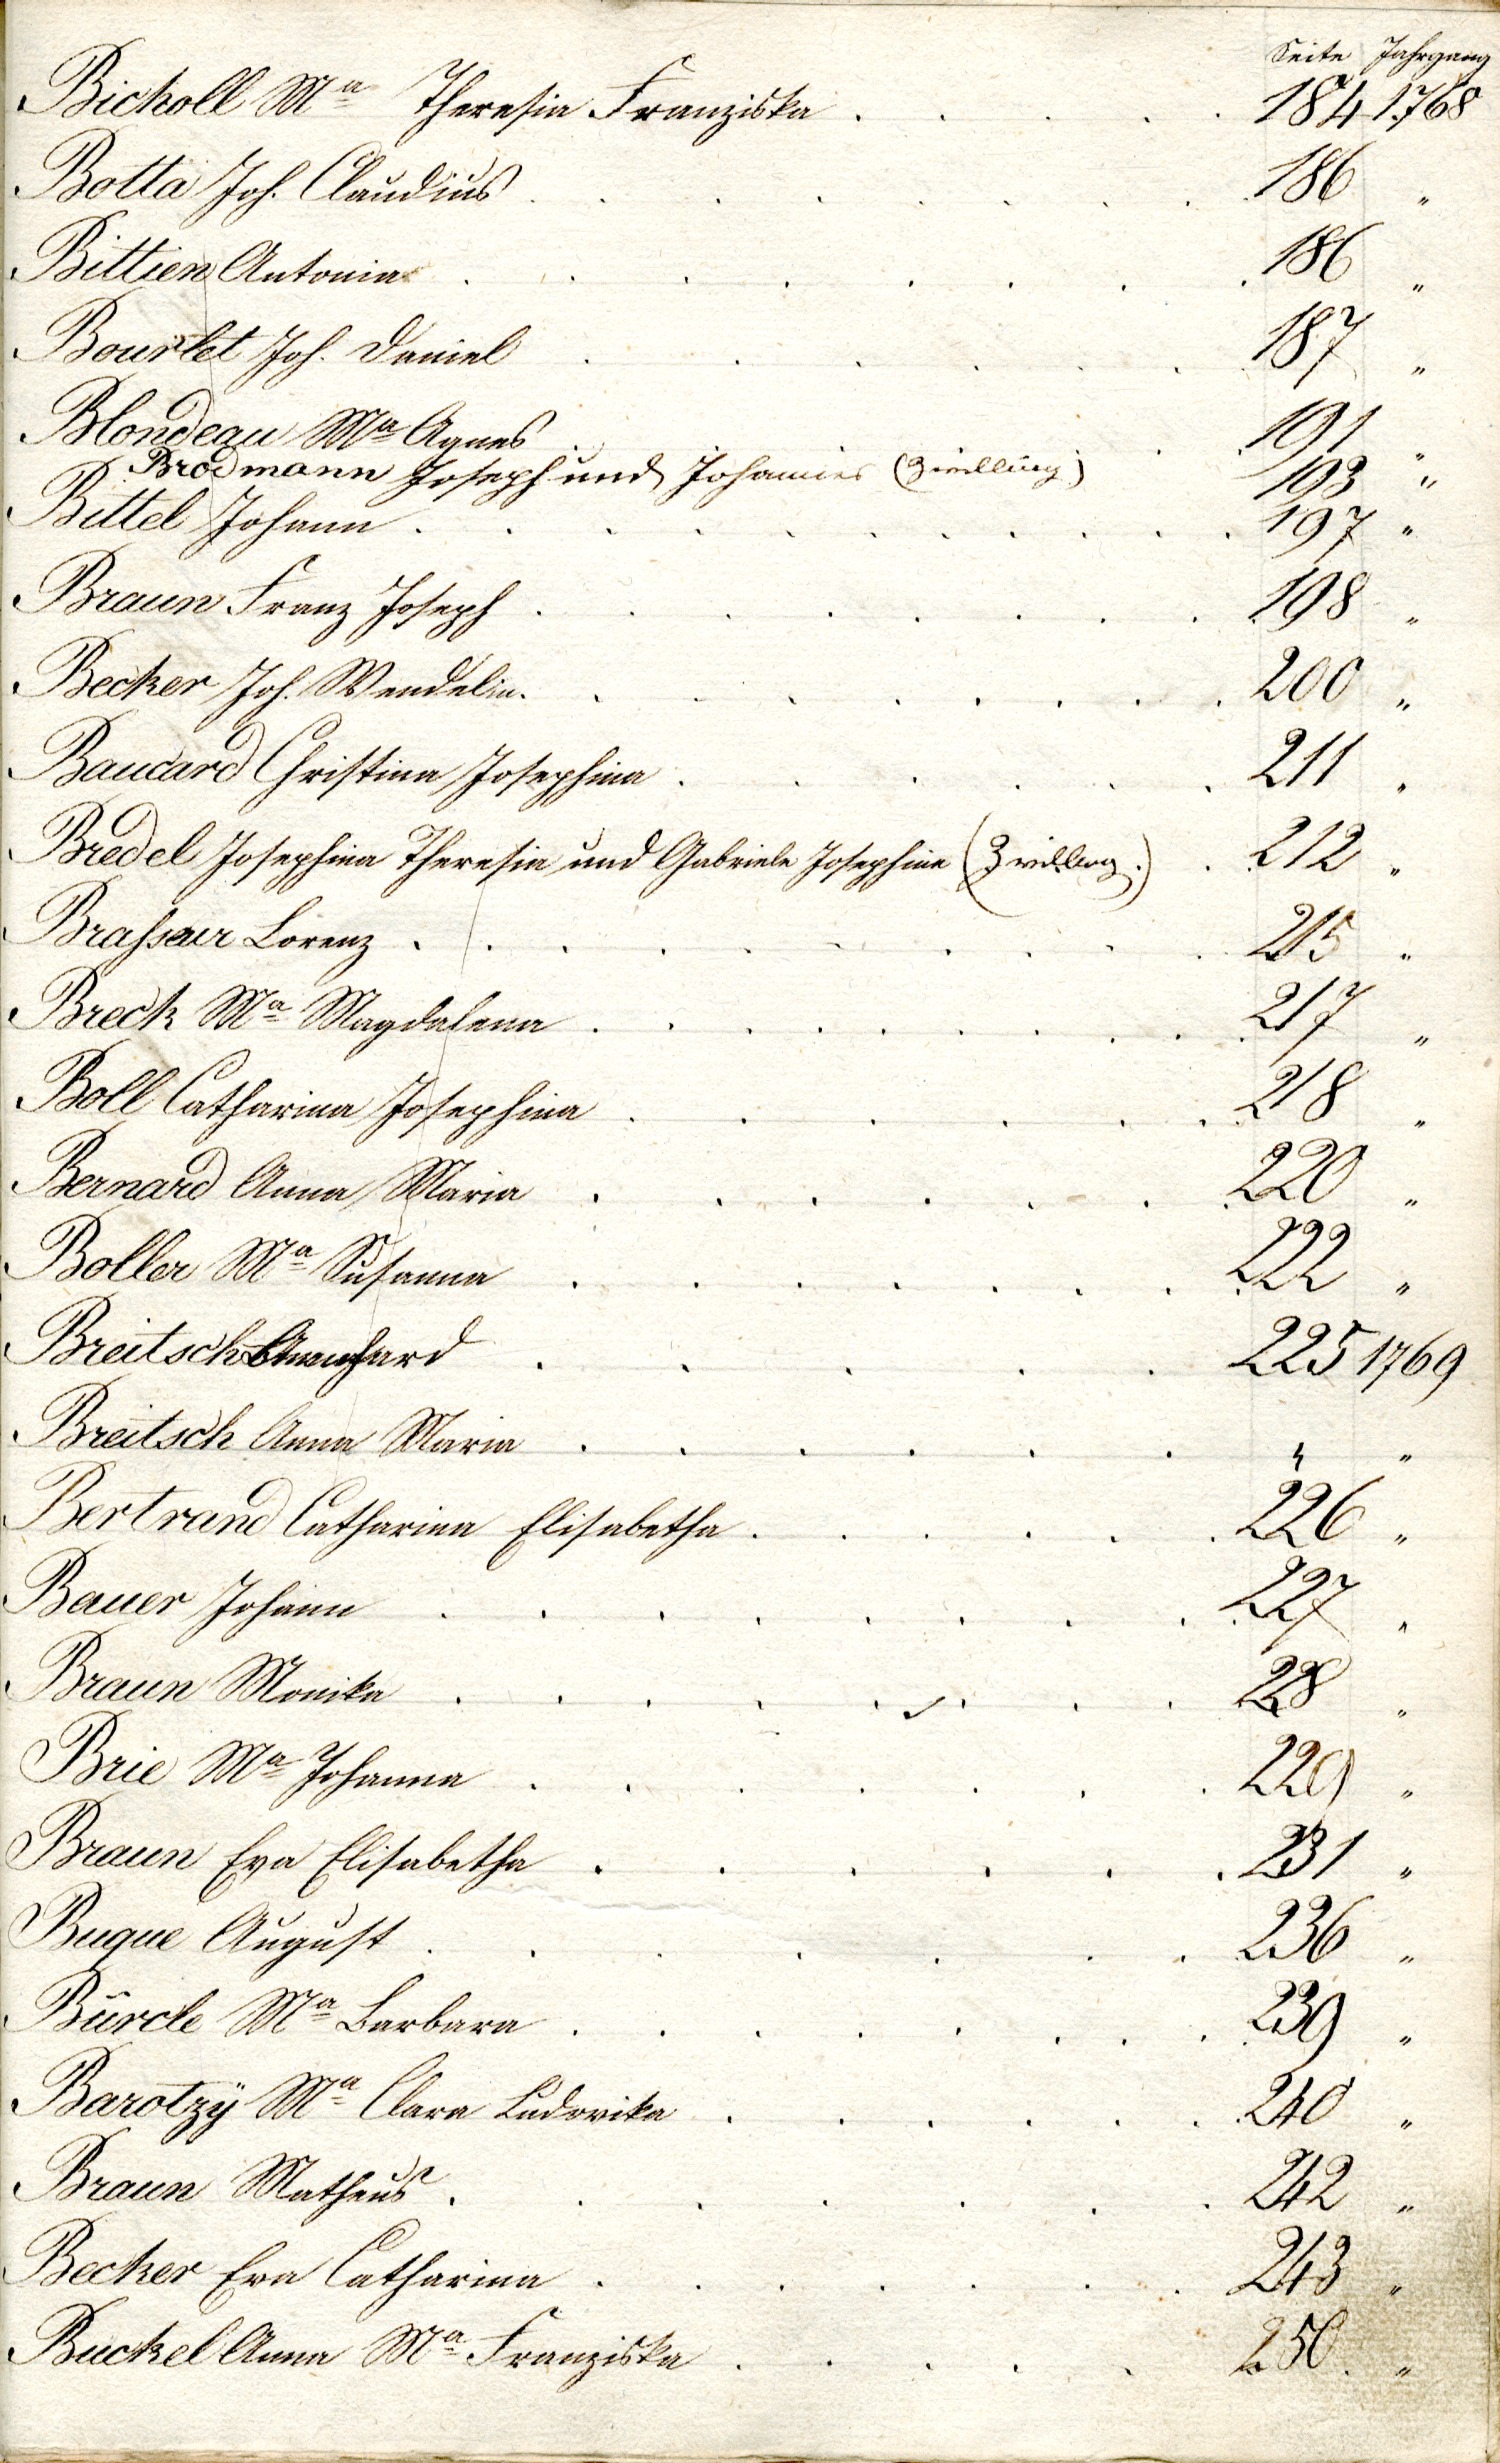 Seite Jahrgang
Bicholl Ma Theresia Franziska . . . . . 184 1768
Botta Joh. Claudius . . . . . . . . 186 "
Bittien Antonia . . . . . . . . 186 "
Bourlet Joh. Daniel . . . . . . 187 "
Blondeau Ma Agnes . . . 191 "
Brodmann Joseph und Johannes (Zwilling) 193 "
Bittel Johann . . . . . . . . . 197 "
Braun Franz Joseph . . . . . . . . 198 "
Becker Joh. Wendelin . . . . . . . . 200 "
Baucard Christina Josephina . . . . . . 211 "
Bredel Josephina Theresia und Gabriele Josephine (Zwilling.) . 212 "
Brasseur Lorenz . . . . . . . . . 215 "
Breck Ma Magdalena . . . . . . . . 217 "
Boll Catharina Josephina . . . . . . 218 "
Bernard Anna Maria . . . . . . . 220 "
Boller Ma Susanna . . . . . . . 222 "
Breitsch . . . . . 225 1769
Breitsch Anna Maria . . . . . . " "
Bertrand Catharina Elisabetha . . . . . . 226 "
Bauer Johann . . . . . . . . 227 "
Braun Monika . . . . . . . . 228 "
Brie Ma Johanna . . . . . . . 229 "
Braun Eva Elisabetha . . . . . . 231 "
Buque August . . . . . . . 236 "
Bürcle Ma Barbara . . . . . . . . 239 "
Barotzÿ Ma Clara Ludovika . . . . . . 240 "
Braun Matheus . . . . . . . 242 "
Becker Eva Catharina . . . . . . . 243 "
Buckel Anna Ma Franziska . . . . . 250. "